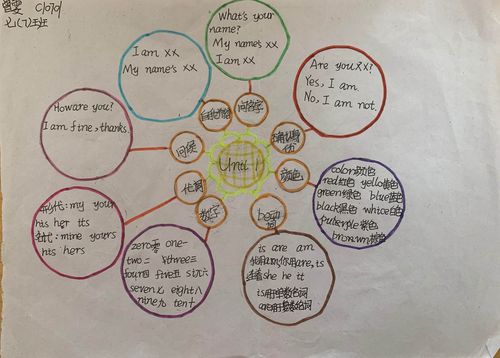 曾雯 C10701
七(7)班
I am xx
My name's xx
自我介绍
What's your
name?
My name's xx
I am xx
问名字
Are you xx?
Yes, I am.
No, I am not.
确认身份
How are you?
I am fine, thanks.
问候
Unit 1
颜色
color颜色
red红色 yello黄色
green绿色 blue蓝色
black黑色 white白色
purple紫色
brown棕色
代词
形代: my your
his her its
名代: mine yours
his hers
数字
zero零 one一
two二 three三
four四 five五 six六
seven七 eight八
nine九 ten十
be动词
is are am
我用am,你用are, is
连着she he it
is用单数名词
are用复数名词